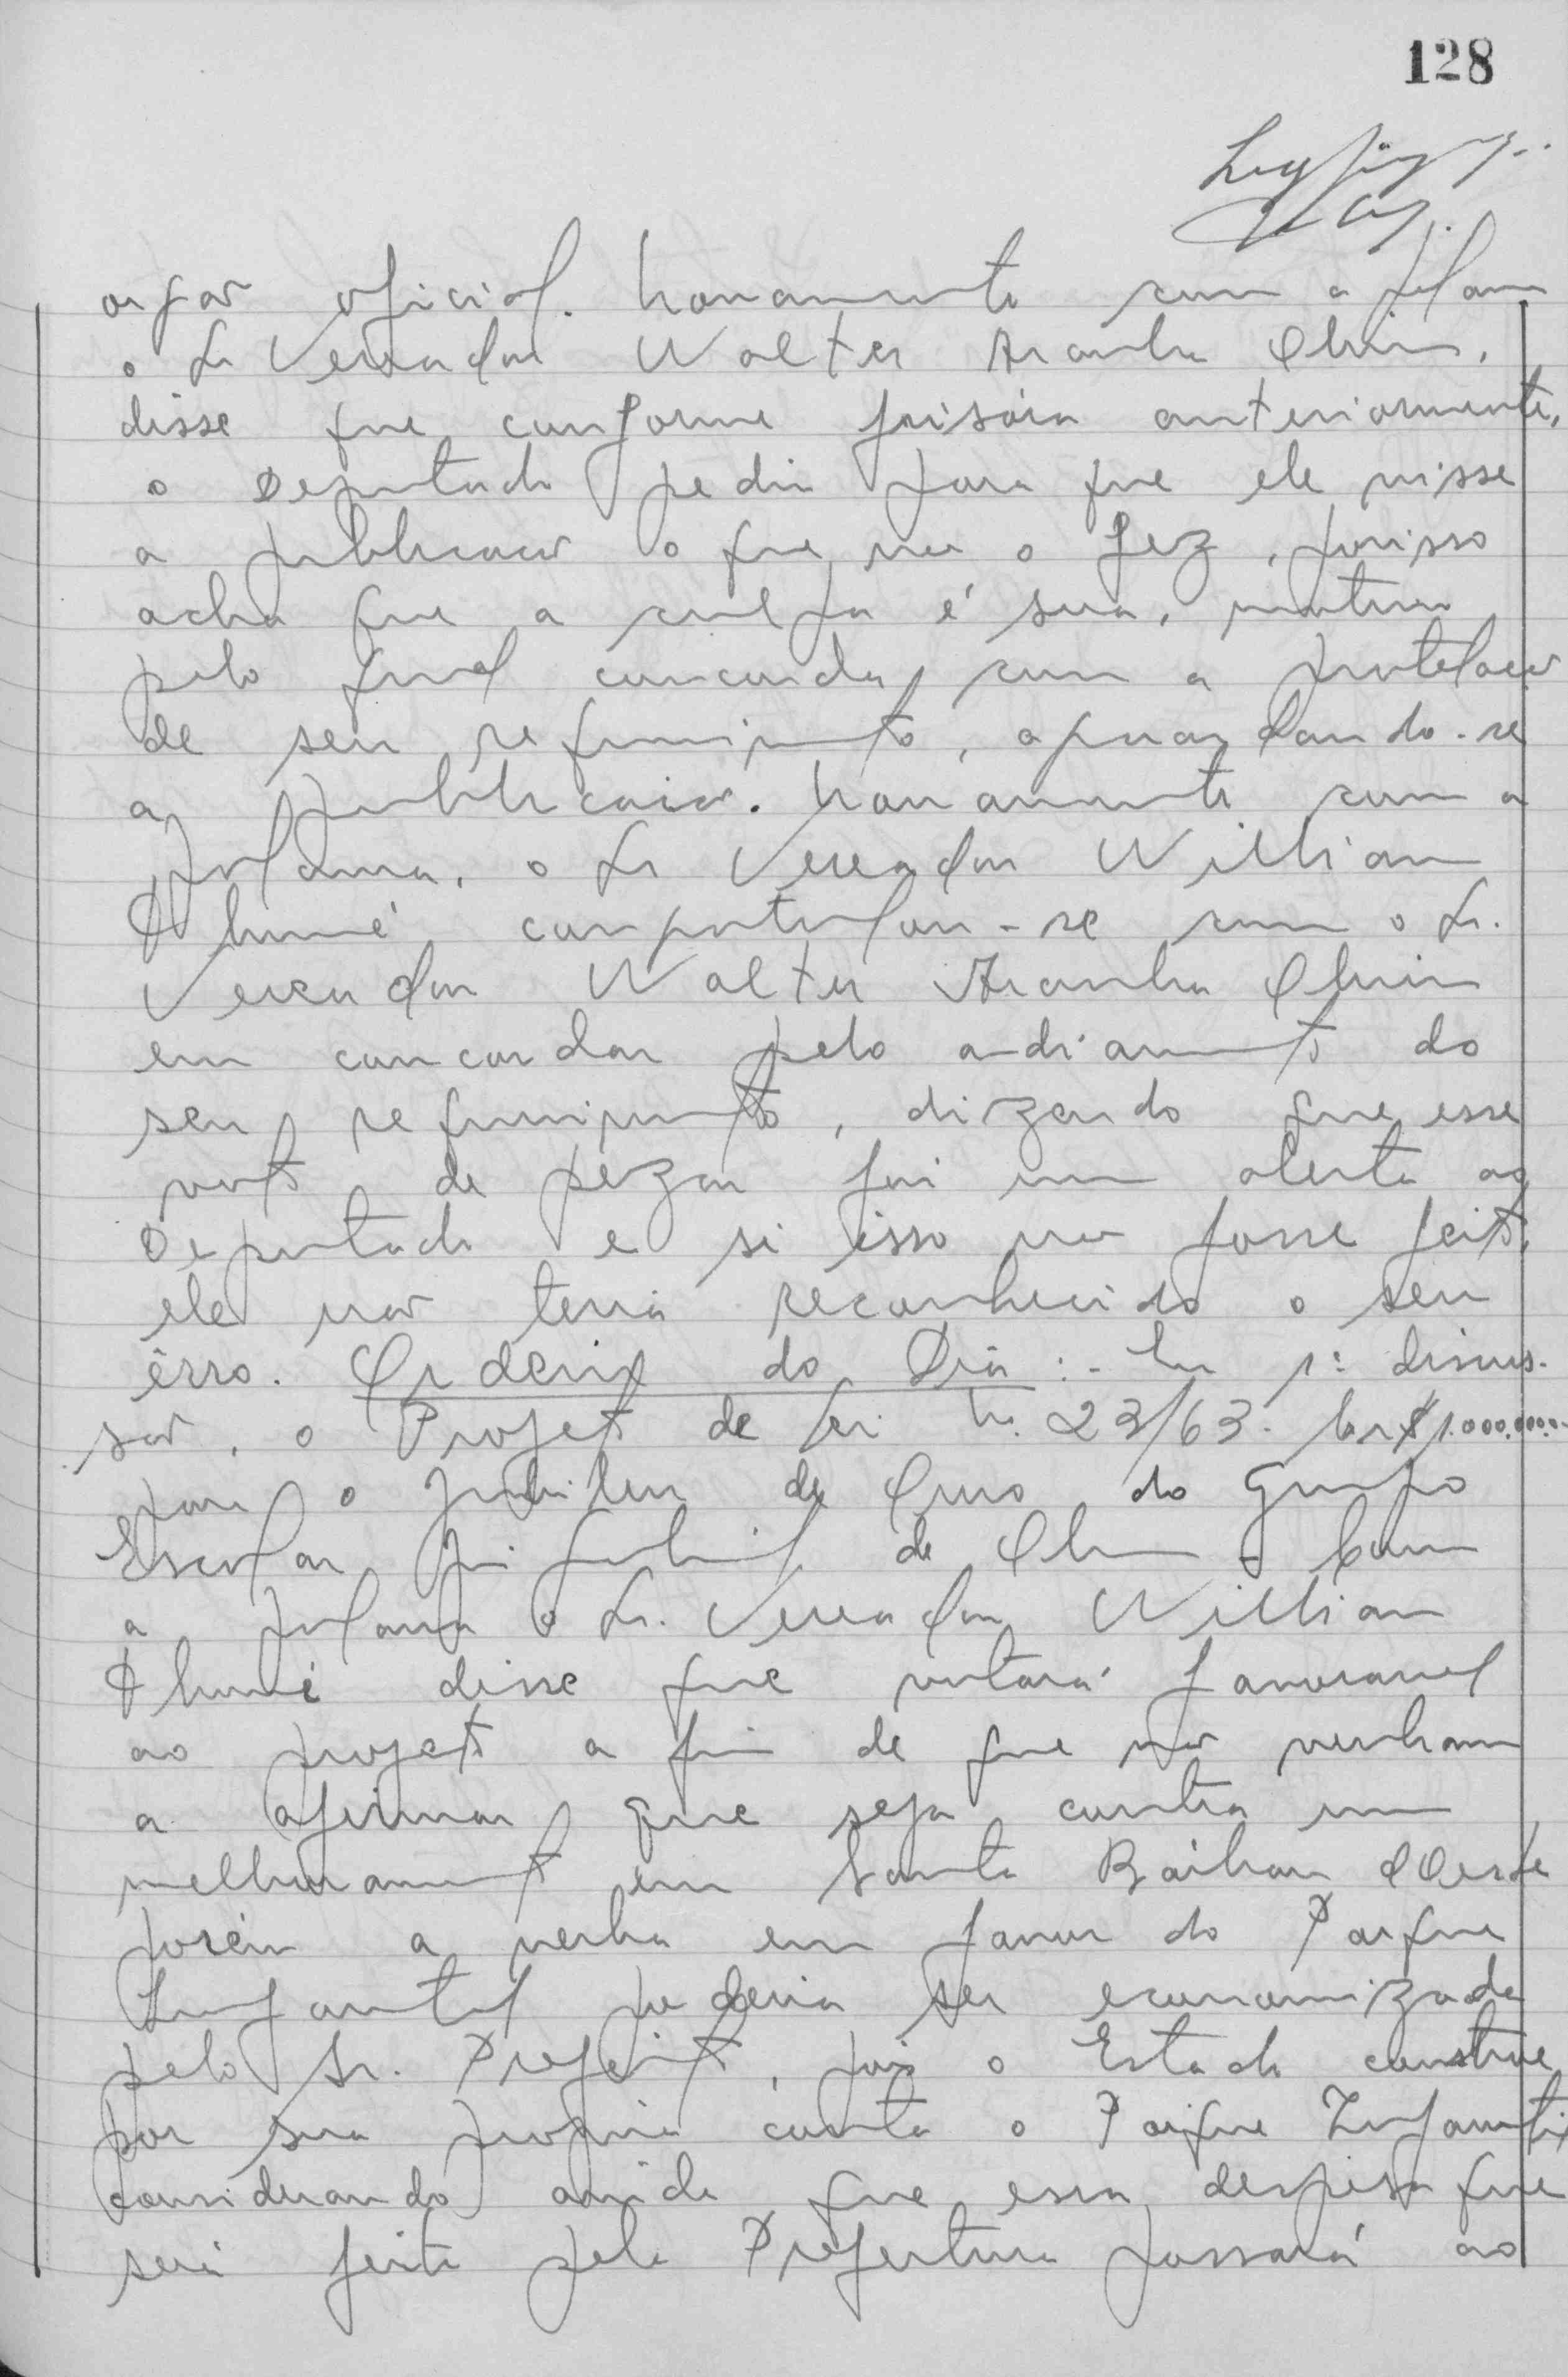 128
orgão oficial. Novamente com a palavra
o Sr Vereador Walter Aranha Olivin,
disse que conforme frisára anteriormente,
o Deputado pediu para que ele visse
a publicação o que não o fez, porisso
acha que a culpa é sua, motivo
pelo qual concorda com a protelação
de seu requerimento, aguardando-se
a publicação. Novamente com a
palavra, o Sr Vereador Willian
Thomé congratulou-se com o Sr.
Vereador Walter Aranha Olivin
em concordar pelo andiamento do
seu requerimento, dizendo que esse
voto de pezar foi um alerta ao
Deputado e si isso não fosse feito,
ele não teria reconhecido o seu
êrro. Ordem do Dia :- Em 1ª discus-
são, o Projeto de Lei Nº. 23/63. Cr$ 1.000.000,00
para o Jubileu de Ouro do Grupo
Escolar de - Com
a palavra o Sr. Vereador Willian
Thomé disse que votará favoravel
ao projeto a fim de que não venham
a afirmar que seja contra um
melhoramento em Santa Bárbara d'Oeste
porém a verba em favor do Parque
Infantil poderia ser economizada
pelo Sr. Prefeito, pois o Estado constroe
por sua propria conta o Parque Infantil
considerando ainda que essa despesa que
será feita pela Prefeitura passará ao